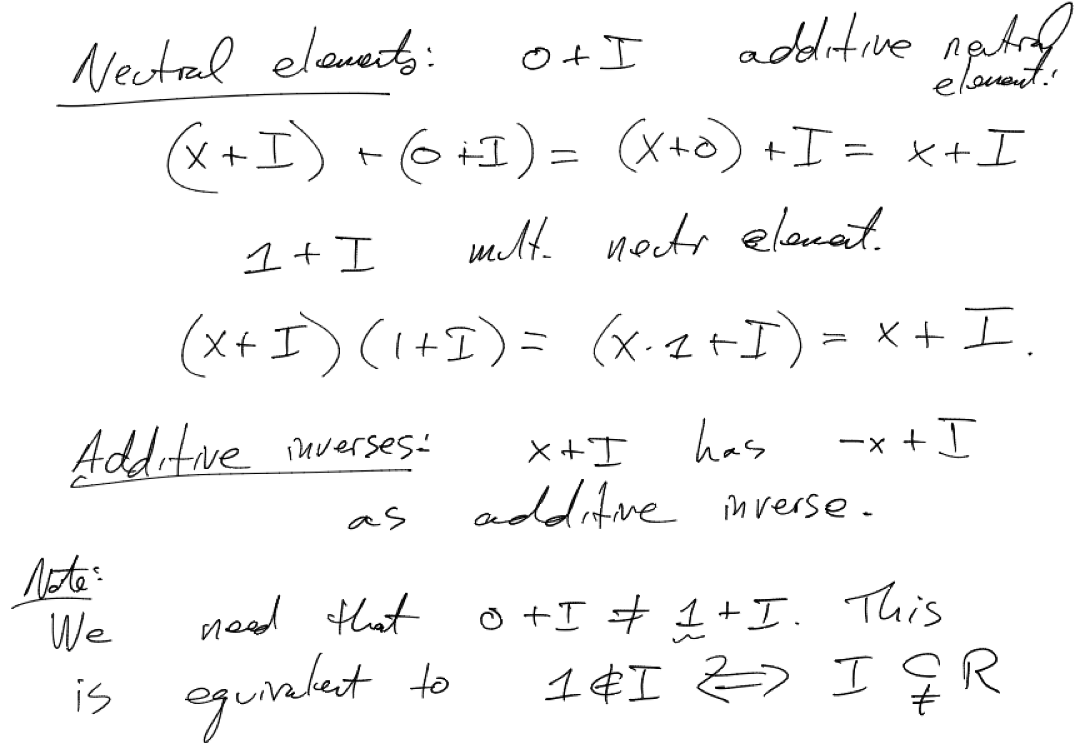 Neutral elements: 0 + I additive neutral element:
(x + I) + (0 + I) = (x+0) + I = x + I
1 + I mult. neutr element.
(x + I) (1 + I) = (x · 1 + I) = x + I.
Additive inverses: x + I has -x + I
as additive inverse.
Note:
We need that 0 + I ≠ 1 + I. This
is equivalent to 1 ∉ I ⟺ I ⊊ R